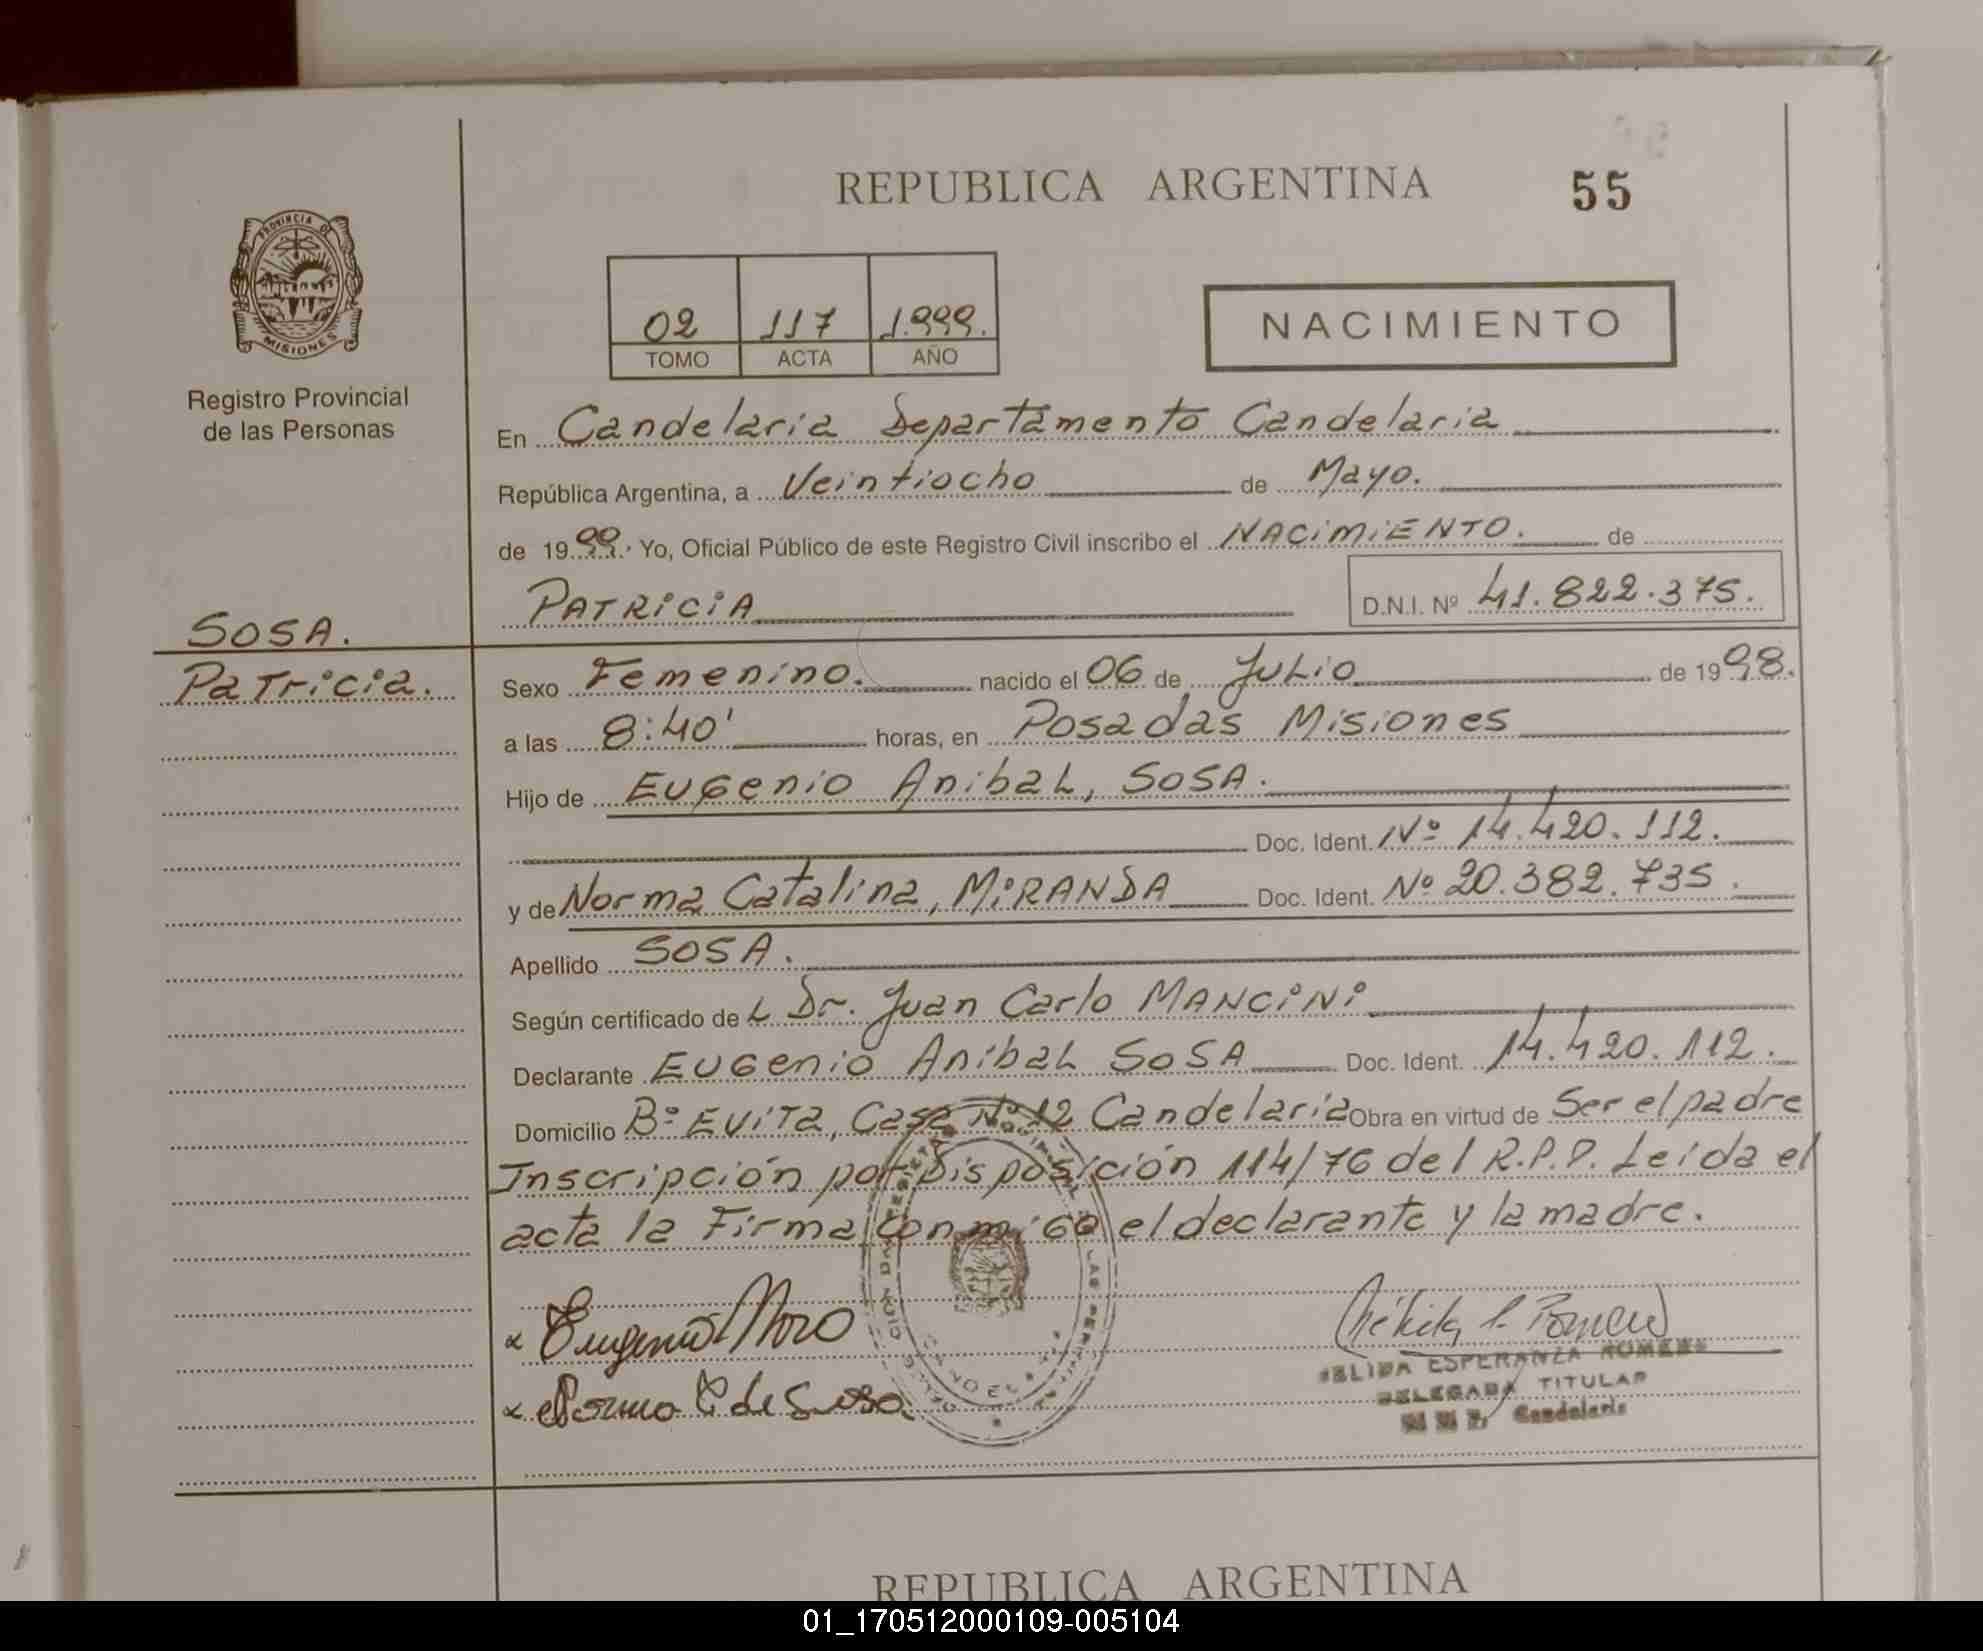 REPUBLICA ARGENTINA
55
PROVINCIA DE
MISIONES
Registro Provincial
de las Personas
02 117 1.999.
TOMO ACTA AÑO
NACIMIENTO
En Candelaria Departamento Candelaria
República Argentina, a Veintiocho de Mayo.
de 1999. Yo, Oficial Público de este Registro Civil inscribo el NACIMIENTO. de
PATRICIA D.N.I. Nº 41.822.375.
SOSA.
Patricia.
Sexo Femenino. nacido el 06 de Julio de 1998.
a las 8:40' horas, en Posadas Misiones
Hijo de Eugenio Anibal, SOSA.
Doc. Ident. Nº 14.420.112.
y de Norma Catalina, MIRANDA Doc. Ident. Nº 20.382.735.
Apellido SOSA.
Según certificado de L Dr. Juan Carlo MANCINI
Declarante Eugenio Anibal SOSA Doc. Ident. 14.420.112.
Domicilio Bº Evita, Casa Nº 12 Candelaria Obra en virtud de Ser el padre
Inscripción por Disposición 114/76 del R.P.P. Leida el
acta la Firma conmigo el declarante y la madre.
Norma C de Sosa
ELIDA ESPERANZA ROMERO
DELEGADA TITULAR
Candelaria
REPUBLICA ARGENTINA
01_170512000109-005104